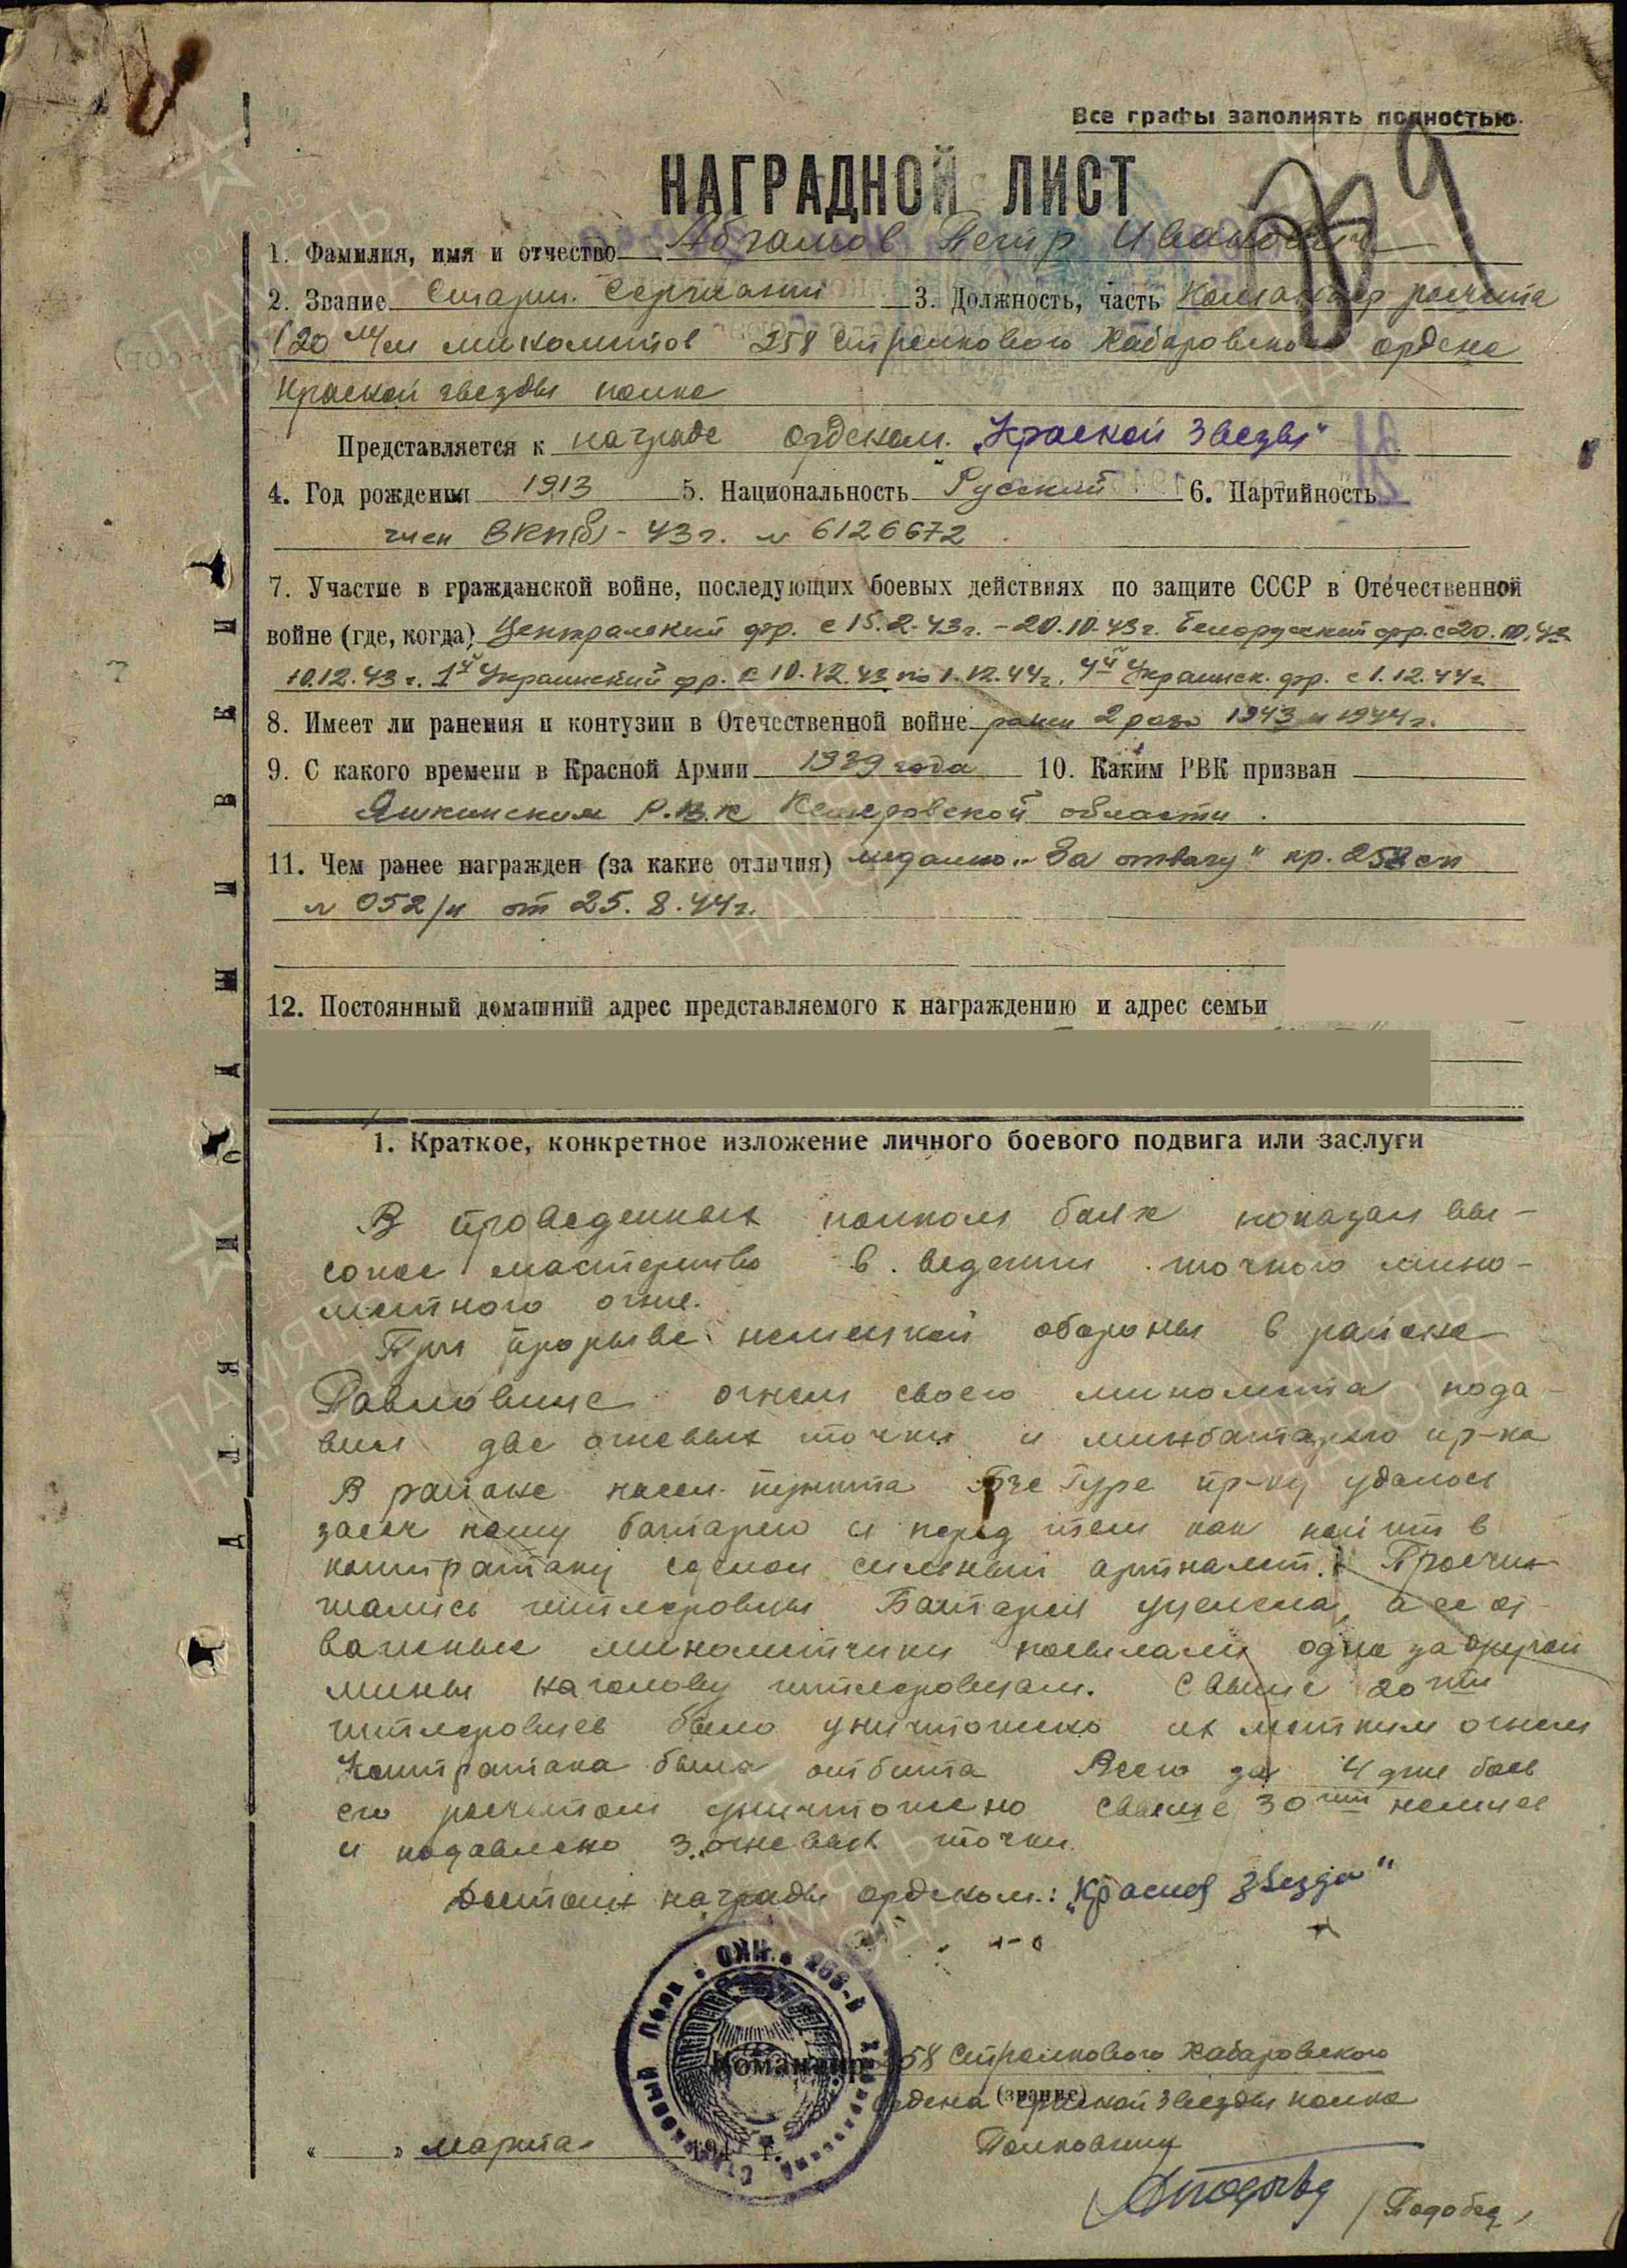 Все графы заполнять полностью.
НАГРАДНОЙ ЛИСТ
1. Фамилия, имя и отчество Абрамов Петр Иванович
2. Звание Старш. Сержант 3. Должность, часть Командир расчета
120 м/м минометов 258 Стрелкового Хабаровского ордена
Красной звезды полка
Представляется к награде орденом „Красной Звезды"
4. Год рождения 1913 5. Национальность Русский 6. Партийность
член ВКП(б) - 43 г. № 6126672
7. Участие в гражданской войне, последующих боевых действиях по защите СССР в Отечественной
войне (где, когда) Центральский фр. с 15.2.43г. - 20.10.43г. Белорусский фр. с 20.10.43
10.12.43 г. 1й Украинский фр. с 10.12.43 по 1.12.44г. 4й Украинск. фр. с 1.12.44г
8. Имеет ли ранения и контузии в Отечественной войне ранен 2 раза 1943 и 1944г.
9. С какого времени в Красной Армии 1939 года 10. Каким РВК призван
Яшкинским Р.В.К Кемеровской области.
11. Чем ранее награжден (за какие отличия) медалью „За отвагу" пр. 258 сп
№ 052/н от 25.8.44г.
12. Постоянный домашний адрес представляемого к награждению и адрес семьи
1. Краткое, конкретное изложение личного боевого подвига или заслуги
В проведенных полком боях показал вы-
сокое мастерство в ведении точного мино-
метного огня.
При прорыве немецкой обороны в районе
Павловице огнем своего миномета пода-
вил две огневых точки и минбатарею пр-ка
В районе насел. пункта Гуре пр-ку удалось
засеч нашу батарею и перед тем как пойти в
контратаку сделал сильный артналет. Просчи-
тались гитлеровцы Батарея уцелела, а ее от-
важные минометчики посылали одна за другой
мины на голову гитлеровцам. Свыше 20ти
гитлеровцев было уничтожено их метким огнем
Контратака была отбита Всего за 4 дня боев
его расчетом уничтожено свыше 30ти немцев
и подавлено 3 огневых точки.
Достоин награды орденом: „Красная Звезда"
Командир 258 Стрелкового Хабаровского
(звание)
ордена Красной Звезды полка
Полковник
« » марта 194 г.
/Подобед/
258-й Хабаровский Стрелковый Полк • НКО •
Д Л Я П О Д Ш И В К И
ПАМЯТЬ НАРОДА
1941-1945